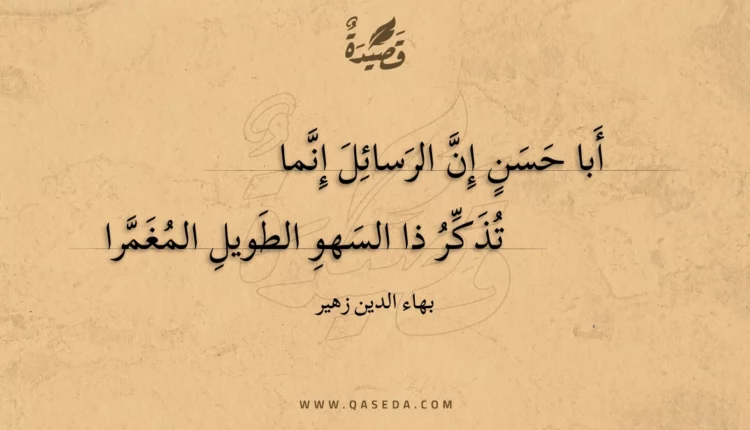 قَصِيْدَةٌ
أَبا حَسَنٍ إِنَّ الرَسائِلَ إِنَّما
تُذَكِّرُ ذا السَهوِ الطَويلِ المُغَمَّرا
بهاء الدين زهير
WWW.QASEDA.COM